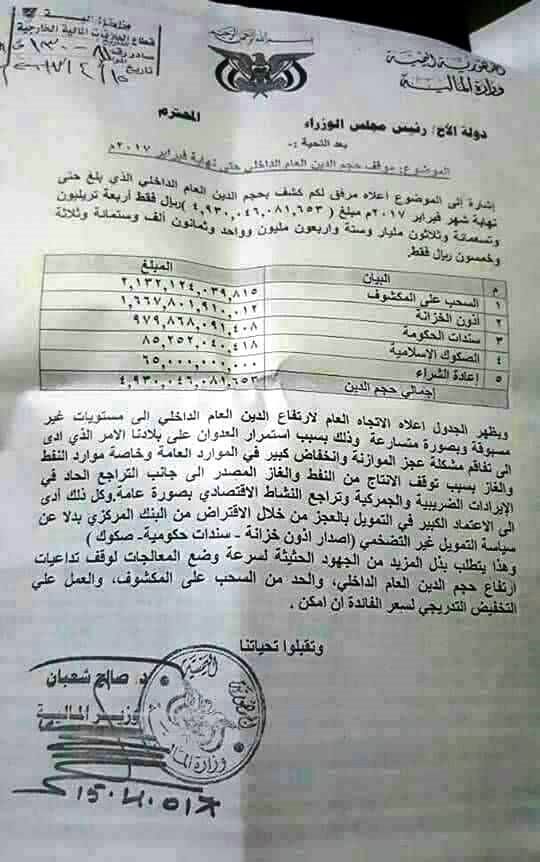 بسم الله الرحمن الرحيم
الجمهورية اليمنية
وزارة المالية
قطاع العلاقات المالية الخارجية
صادر رقم
تاريخ
دولة الأخ/ رئيس مجلس الوزراء المحترم
بعد التحية ،-
الموضوع: موقف حجم الدين العام الداخلي حتى نهاية فبراير ٢٠١٧م
إشارة إلى الموضوع اعلاه مرفق لكم كشف بحجم الدين العام الداخلي الذي بلغ حتى
نهاية شهر فبراير ٢٠١٧م مبلغ ( ٤,٩٣٠,٠٤٦,٠٨١,٦٥٣ ) ريال فقط أربعة تريليون
وتسعمائة وثلاثون مليار وستة واربعون مليون وواحد وثمانون ألف وستمائة وثلاثة
وخمسون ريال فقط.
م البيان المبلغ
١ السحب على المكشوف ٢,١٣٢,١٢٤,٠٣٩,٨١٥
٢ أذون الخزانة ١,٦٦٧,٨٠١,٩١٠,٠١٢
٣ سندات الحكومة ٩٧٩,٨٦٨,٠٩١,٤٠٨
٤ الصكوك الاسلامية ٨٥,٢٥٢,٠٤٠,٤١٨
٥ إعادة الشراء ٦٥,٠٠٠,٠٠٠,٠٠٠
إجمالي حجم الدين ٤,٩٣٠,٠٤٦,٠٨١,٦٥٣
ويظهر الجدول اعلاه الاتجاه العام لارتفاع الدين العام الداخلي الى مستويات غير
مسبوقة وبصورة متسارعة وذلك بسبب استمرار العدوان على بلادنا الامر الذي ادى
الى تفاقم مشكلة عجز الموازنة وإنخفاض كبير في الموارد العامة وخاصة موارد النفط
والغاز بسبب توقف الانتاج من النفط والغاز المصدر الى جانب التراجع الحاد في
الإيرادات الضريبية والجمركية وتراجع النشاط الاقتصادي بصورة عامة.وكل ذلك أدى
الى الاعتماد الكبير في التمويل بالعجز من خلال الاقتراض من البنك المركزي بدلا عن
سياسة التمويل غير التضخمي (اصدار اذون خزانة - سندات حكومية- صكوك )
وهذا يتطلب بذل المزيد من الجهود الحثيثة لسرعة وضع المعالجات لوقف تداعيات
ارتفاع حجم الدين العام الداخلي، والحد من السحب على المكشوف، والعمل على
التخفيض التدريجي لسعر الفائدة ان امكن .
وتقبلوا تحياتنا
د. صالح شعبان
وزير المالية